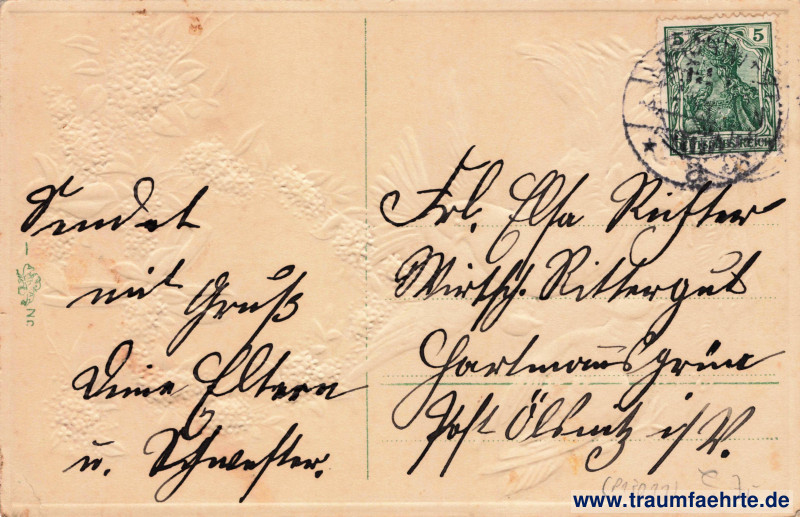 Sendet
mit Gruß
Deine Eltern
u. Schwester.
Frl. Elsa Richter
Wirtsch. Rittergut
Hartmannsgrün
Post Ölsnitz i/V.
5 5
DEUTSCHES REICH
NC
www.traumfaehrte.de